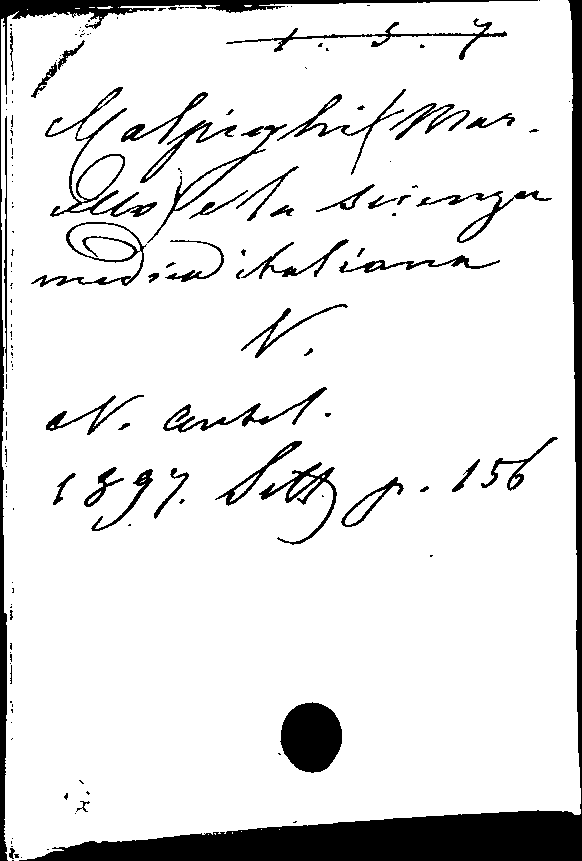 1. 5. 7
Malpighi (Mar-
cello) e la scienza
medica italiana
N.
N. Antol.
1897. Sett. p. 156